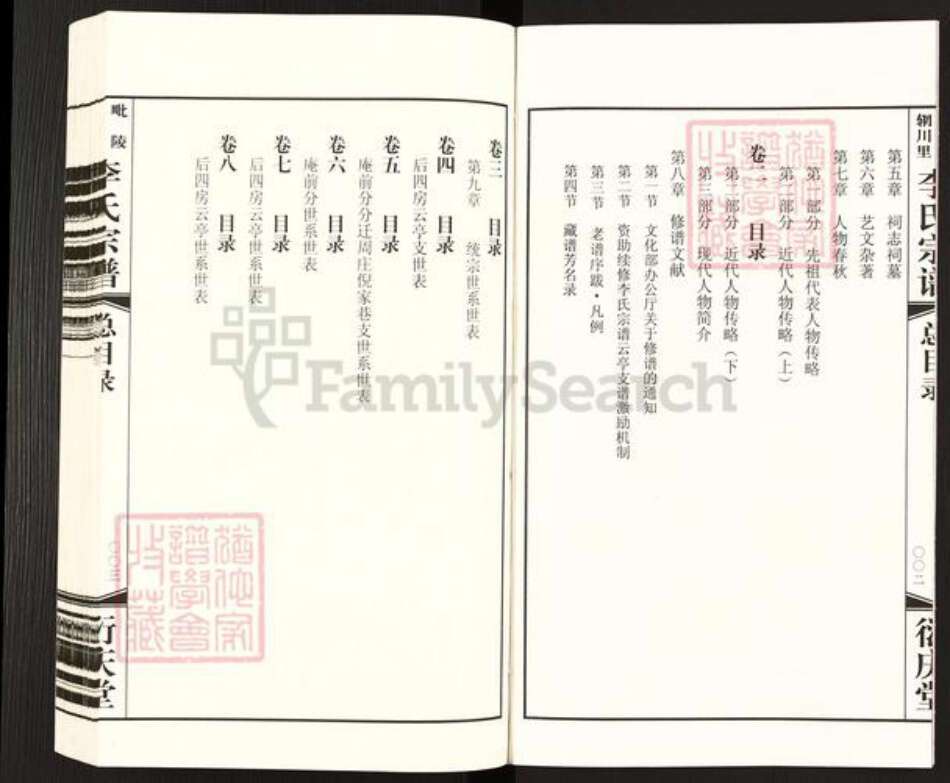 辋川里
李氏宗谱
总目录
〇〇二
衍庆堂
第五章 祠志祠墓
第六章 艺文杂著
第七章 人物春秋
第一部分 先祖代表人物传略
第二部分 近代人物传略（上）
卷二 目录
第二部分 近代人物传略（下）
第三部分 现代人物简介
第八章 修谱文献
第一节 文化部办公厅关于修谱的通知
第二节 资助续修李氏宗谱云亭支谱激励机制
第三节 老谱序跋·凡例
第四节 藏谱芳名录
卷三 目录
第九章 统宗世系世表
卷四 目录
后四房云亭支世表
卷五 目录
庵前分分迁周庄倪家巷支世系世表
卷六 目录
庵前分世系世表
卷七 目录
后四房云亭世系世表
卷八 目录
后四房云亭世系世表
毗陵
李氏宗谱
总目录
〇〇三
衍庆堂
FamilySearch
譜學會
收藏